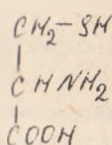 CH₂-SH
CHNH₂
COOH